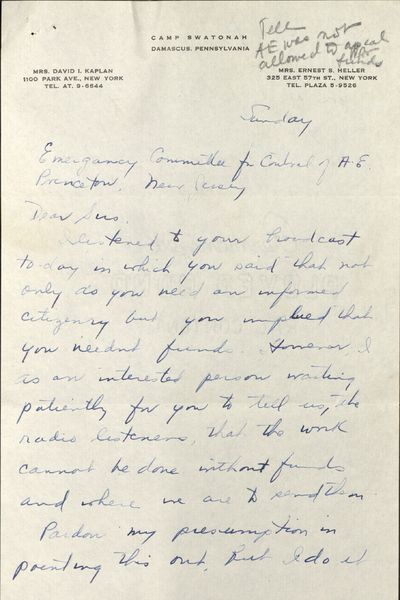 CAMP SWATONAH
DAMASCUS, PENNSYLVANIA
Tell
AE was not
allowed to appeal
for funds
MRS. DAVID I. KAPLAN
1100 PARK AVE., NEW YORK
TEL. AT. 9-6644
MRS. ERNEST S. HELLER
325 EAST 57TH ST., NEW YORK
TEL. PLAZA 5-9526
Sunday
Emergency Committee for Control of A.E.
Princeton, New Jersey
Dear Sirs.
I listened to your broadcast
to-day in which you said that not
only do you need an informed
citizenry but you implied that
you needed funds. However I
as an interested person waiting
patiently for you to tell us, the
radio listeners, that the work
cannot be done without funds
and where we are to send them.
Pardon my presumption in
pointing this out, but I do it